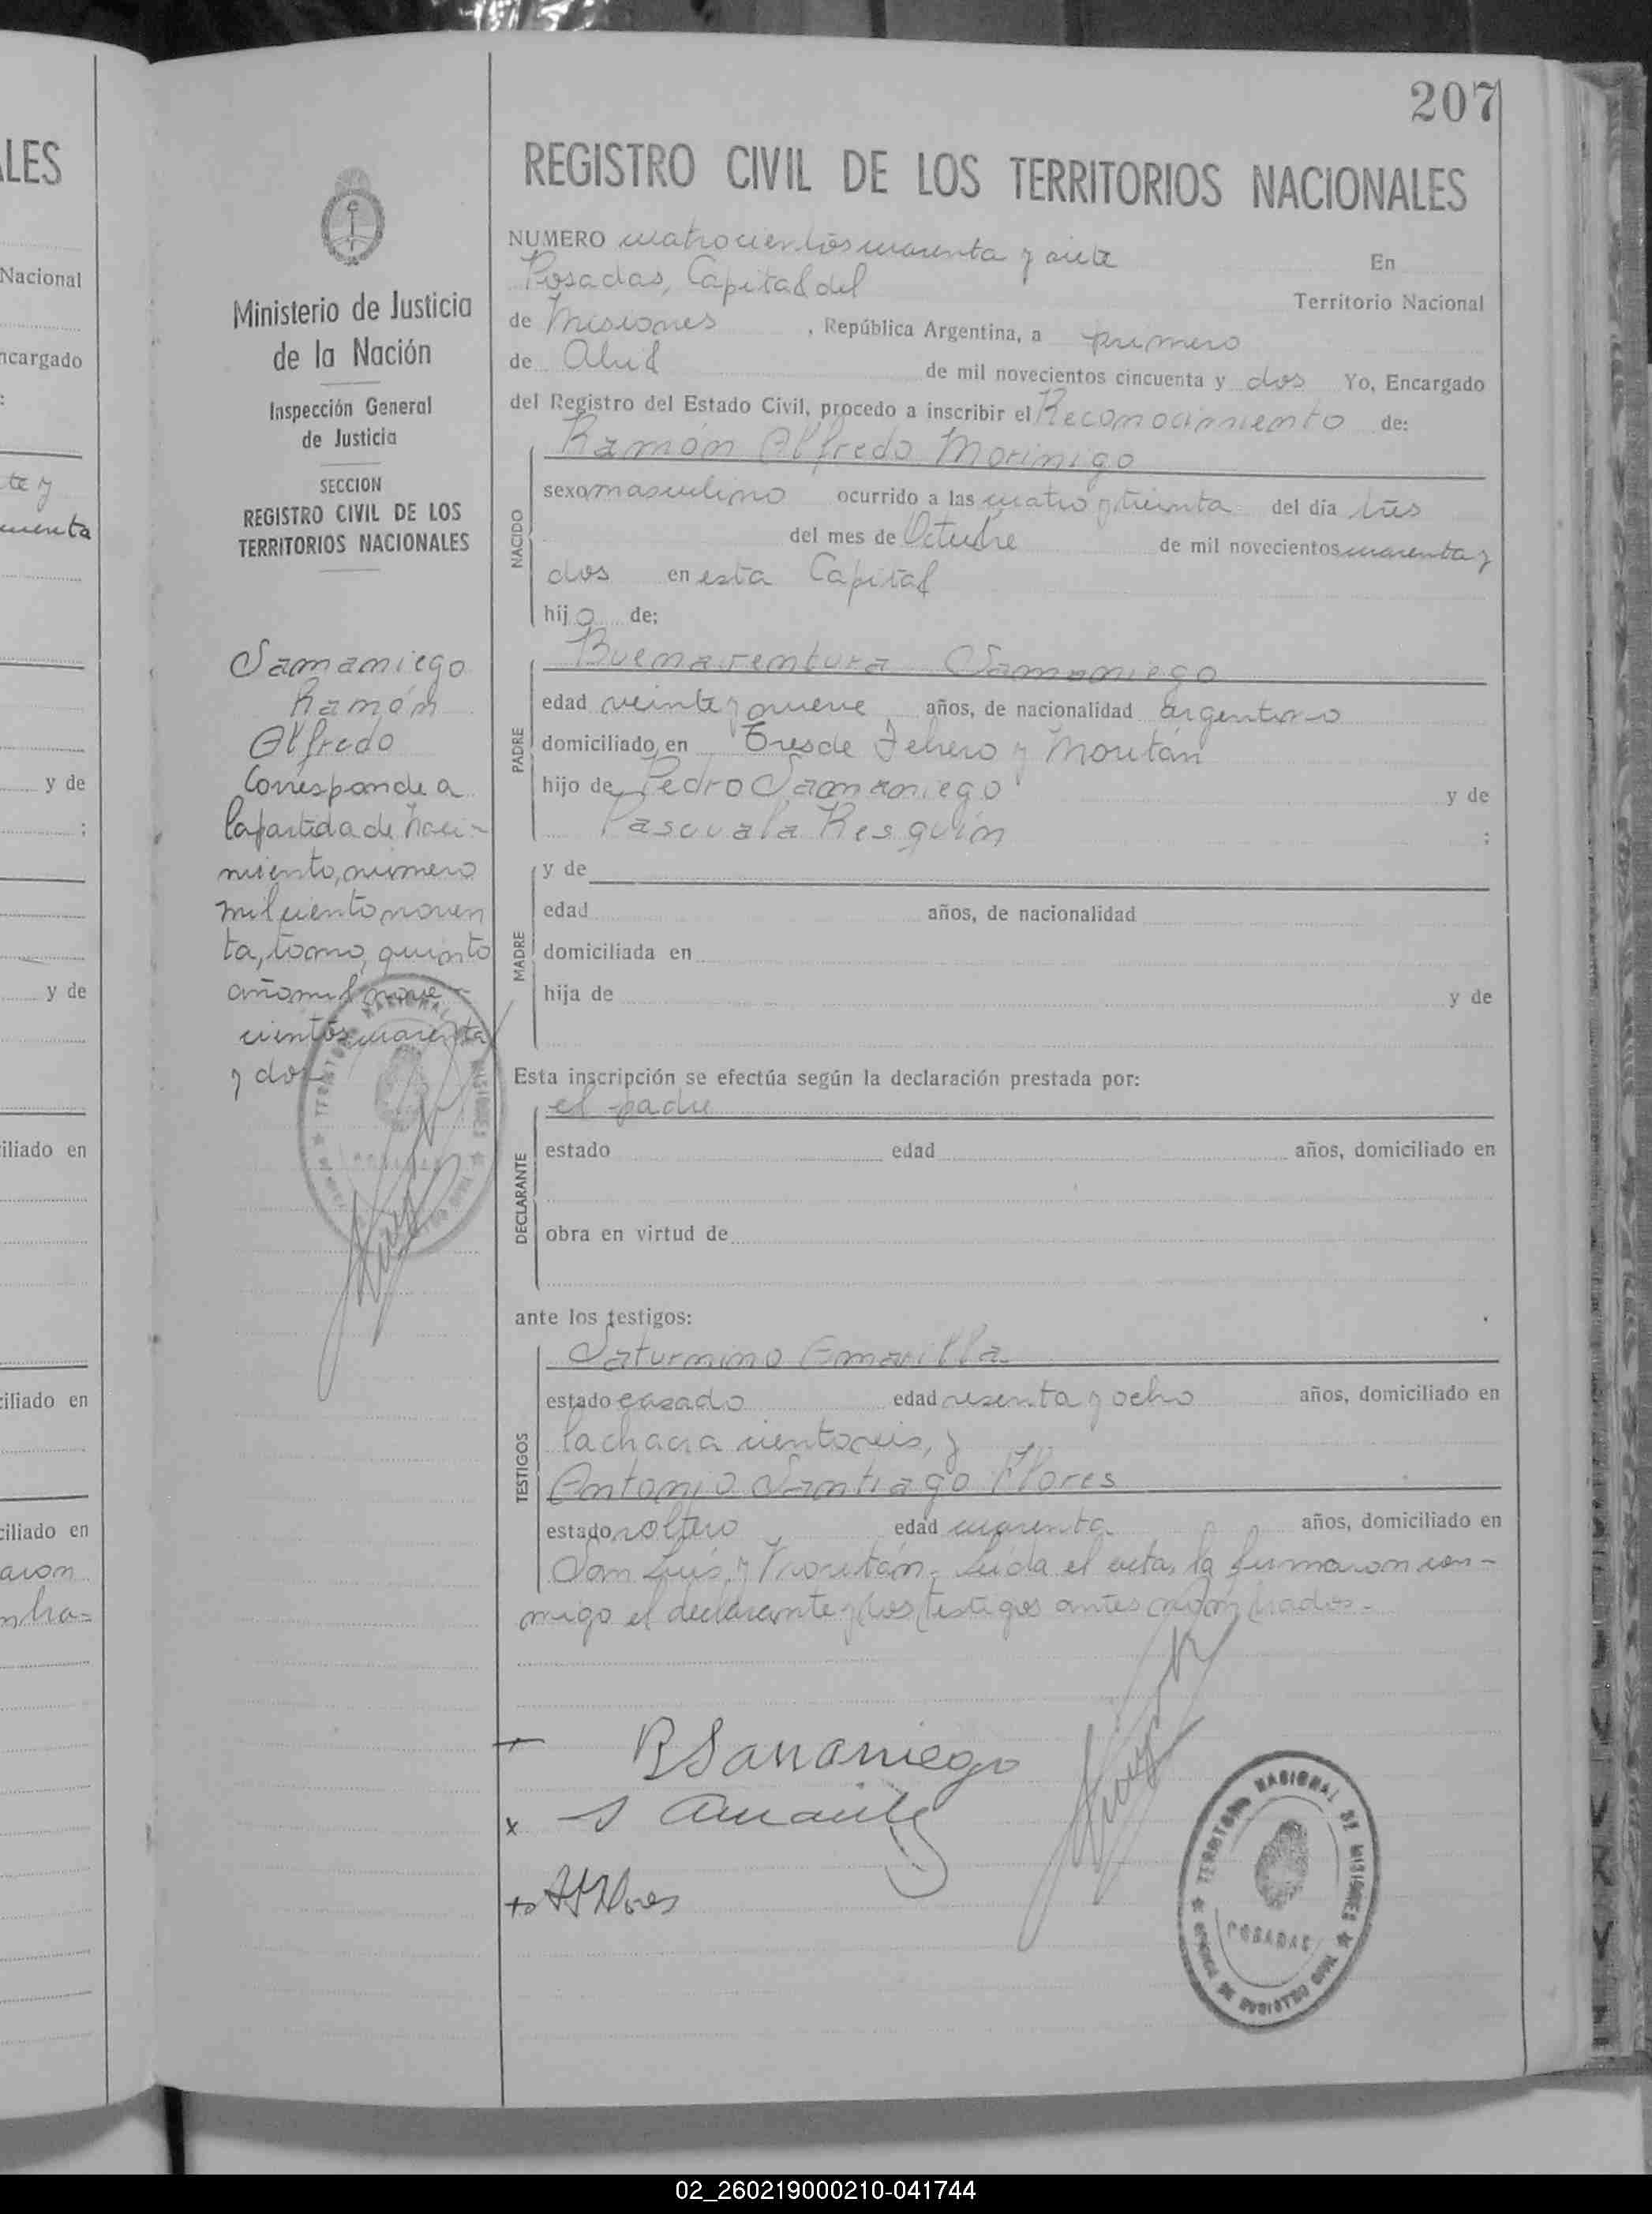 207
REGISTRO CIVIL DE LOS TERRITORIOS NACIONALES
NUMERO cuatrocientos cuarenta y siete En
Posadas, Capital del Territorio Nacional
de Misiones, República Argentina, a primero
de Abril de mil novecientos cincuenta y dos Yo, Encargado
del Registro del Estado Civil, procedo a inscribir el Reconocimiento de:
Ramón Alfredo Morinigo
NACIDO
sexo masculino ocurrido a las cuatro y treinta del día tres
del mes de Octubre de mil novecientos cuarenta y
dos en esta Capital
hijo de:
Buenaventura Samaniego
PADRE
edad veinte y nueve años, de nacionalidad argentino
domiciliado en Tres de Febrero y Moritán
hijo de Pedro Samaniego y de
Pascuala Resquin ;
MADRE
y de
edad años, de nacionalidad
domiciliada en
hija de y de
Esta inscripción se efectúa según la declaración prestada por:
el padre
DECLARANTE
estado edad años, domiciliado en
obra en virtud de
ante los testigos:
TESTIGOS
Saturnino Amarilla
estado casado edad sesenta y ocho años, domiciliado en
la chacra ciento seis, y
Antonio Santiago Flores
estado soltero edad cuarenta años, domiciliado en
San Luis y Moritán. Leída el acta, la firmaron con-
migo el declarante y los testigos antes nombrados.-
B Samaniego
S Amarilla
A S Flores
TERRITORIO NACIONAL DE MISIONES
POSADAS
OFICINA DE REGISTRO CIVIL
Ministerio de Justicia
de la Nación
Inspección General
de Justicia
SECCION
REGISTRO CIVIL DE LOS
TERRITORIOS NACIONALES
Samaniego
Ramón
Alfredo
Corresponde a
la partida de naci-
miento, número
mil ciento noven
ta, tomo, quinto
año mil nove-
cientos cuarenta
y dos
LES
Nacional
ncargado
:
te y
uenta
y de
;
y de
iliado en
ciliado en
ciliado en
aron
mbra=
02_260219000210-041744